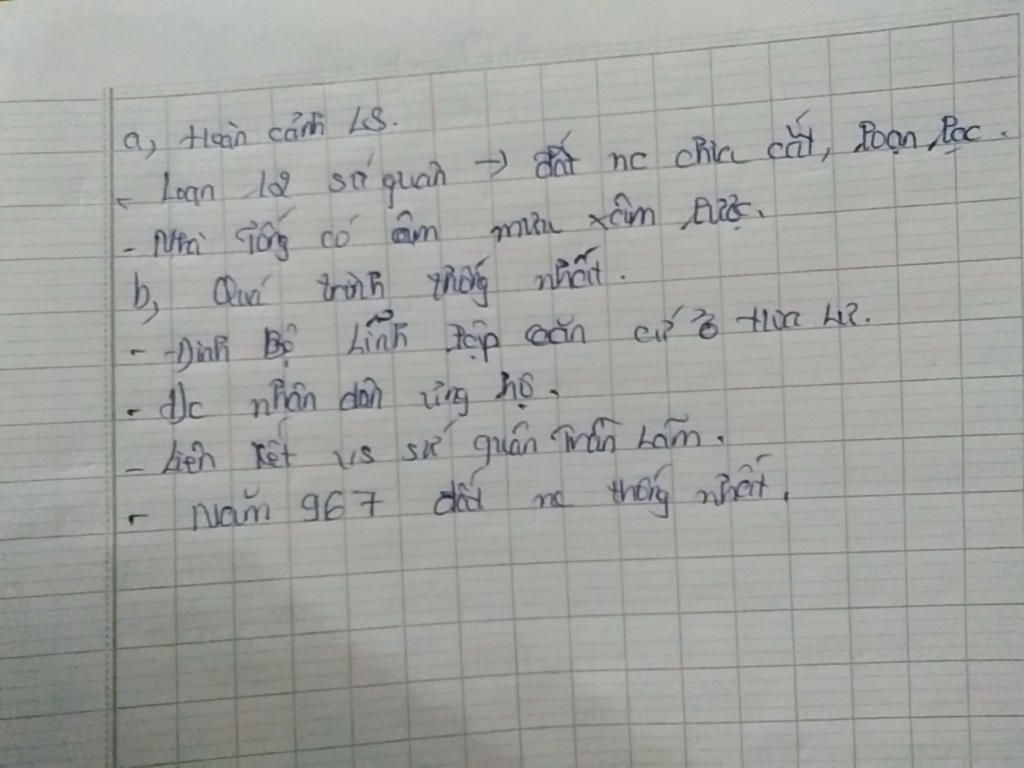 a, Hoàn cảnh LS.
- Loạn 12 sứ quân → đất nc chia cắt, loạn lạc.
- Nhà Tống có âm mưu xâm lược.
b, Quá trình thống nhất.
- Đinh Bộ Lĩnh lập căn cứ ở Hoa Lư.
- Đc nhân dân ủng hộ.
- Liên kết vs sứ quân Trần Lãm.
- Năm 967 đất nc thống nhất.